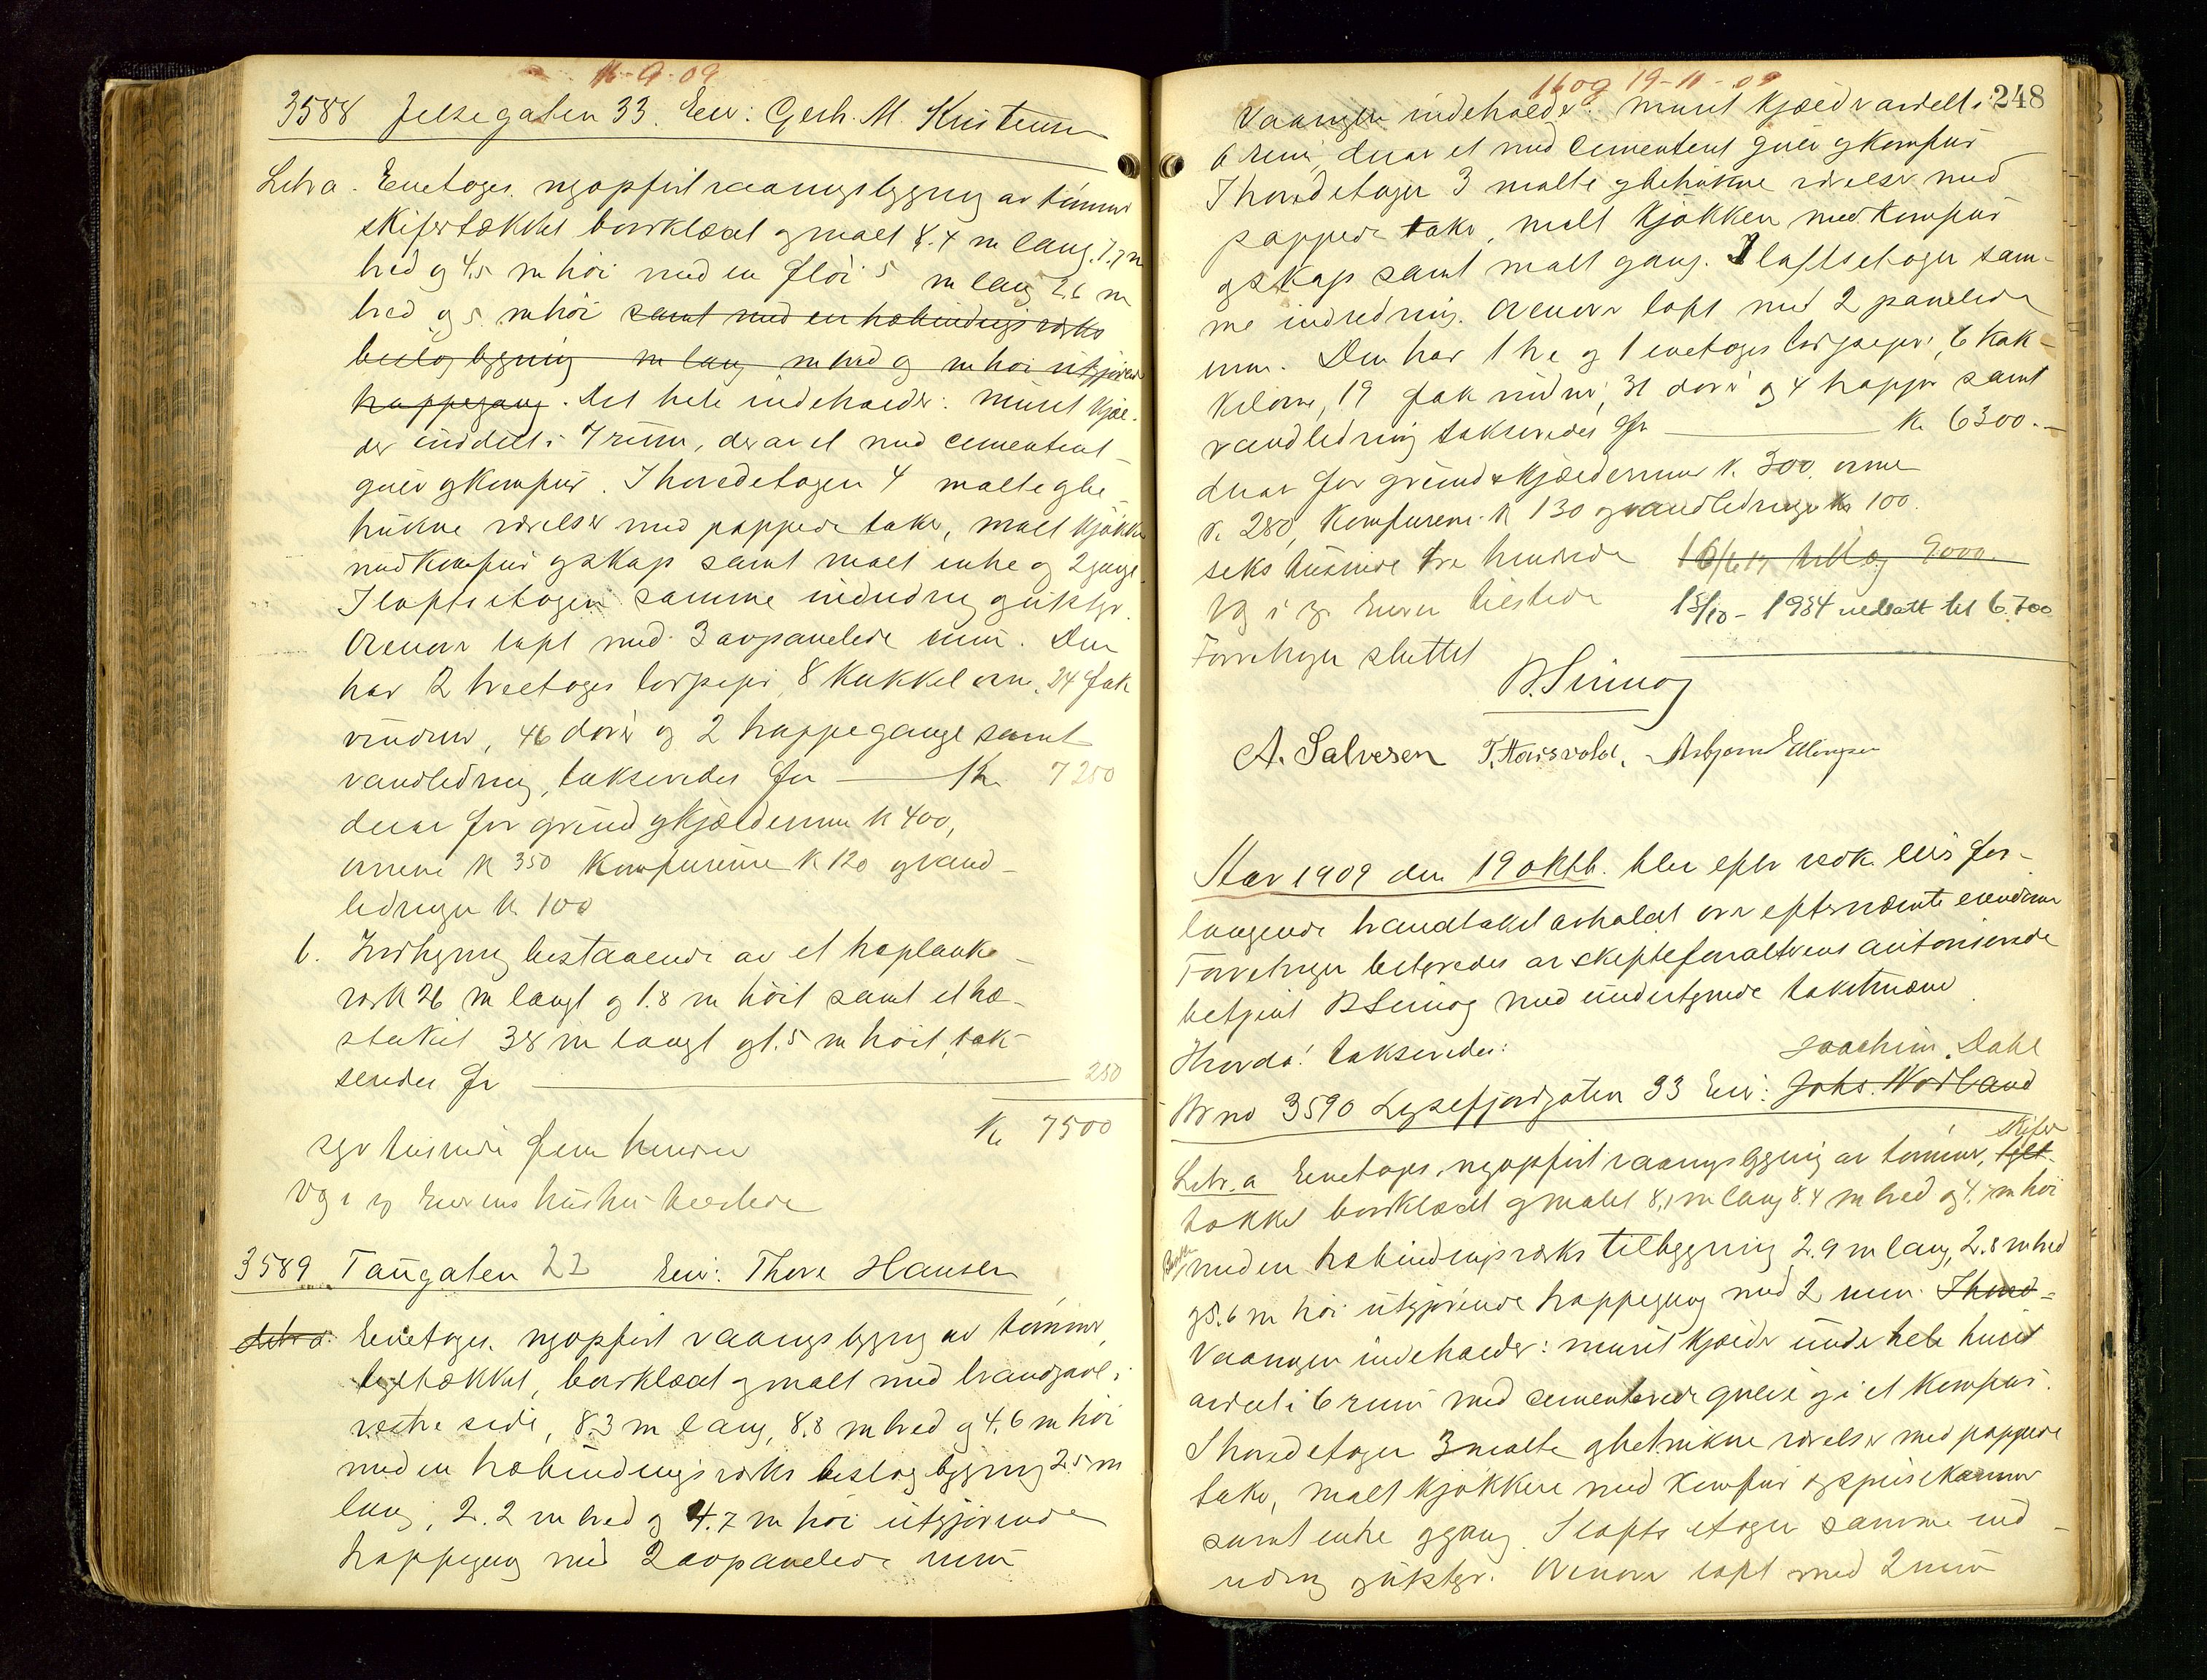 16-9-09
3588 Jelsegaten 33. Eier: Gerh. M. Kristensen
Litra a. Enetages nyopført vaaningsbygning av tømmer
skifertækket bordklædt og malt 8.4 m lang, 7.7 m
bred og 4,5 m høi med en fløi 5 m lang 2.6 m
bred og 5 m høi samt med en halvbindingsverks
beslag bygning m lang m bred og m høi utgjørende
trappegang. Det hele indeholder: muret kjæl-
der inddelt i 7 rum, derav et med cementeret
gulv og komfur. I hovedetagen 4 malte og be-
trukne værelser med pappede taker, malt kjøkken
med komfur og skap samt malt entre og 2 gange.
I loftsetagen samme indredning og utstyr.
Ovenover loft med 3 avpanelede rum. Den
har 2 treetages lorpiper, 8 kakkelovne, 24 fak
vinduer, 46 dører og 2 trappegange samt
vandledning, takseredes for Kr. 7250
derav for grund og kjældermur kr 400,
ovnene kr 350 komfurerne kr 120 og vand-
ledningen kr. 100
b. Indhegning bestaaende av et halvplanke-
verk 26 m langt og 1.8 m høit samt et
stakit 38 m langt og 1.5 m høit, tak-
seredes for 250
Kr 7500
syv tusinde fem hundre
Eierens hustru tilstede
3589 Taugaten 22 Eier: Thore Hansen
Litra a: Enetages nyopført vaaningsbygning av tømmer,
teglhækket, bordklædt og malt med brandgavl i
vestre side, 8.3 m lang, 8.8 m bred og 4.6 m høi
med en halvbindingsverks beslag bygning 2.5 m
lang, 2.2 m bred og 4.7 m høi utgjørende
trappegang med 2 avpanelede rum
16 og 19-11-09
248
Vaaningen indeholder: muret kjælder avdelt i
6 rum, derav et med cementeret gulv og komfur
I hovedetagen 3 malte og betrukne værelser med
pappede taker, malt kjøkken med komfur
og skap samt malt gang. I loftsetagen sam-
me indredning. Ovenover loft med 2 panelede
rum. Den har 1 tre og 1 enetages lorpiper, 6 kak-
kelovne, 19 fak vinduer, 31 dører og 4 trapper samt
vandledning takseredes for Kr 6300.-
derav for grund & kjældermur kr. 300, ovnene
kr. 280, komfurene kr 130 og vandledningen kr 100.
seks tusinde tre hundrede 16/6 17 tillæg 9000.
Eieren tilstede 15/10 - 1934 nedsatt til 6.700
Forretningen sluttet
A. Salvesen T. Hausvold. Asbjørn Ellingsen
Aar 1909 den 19 oktb. blev efter
langende brandtakst avholdt over efternævnte eiendomme
Forretningen bestyredes av skifteforvalterens autoriserede
betjent med undertegnede takstmænd
Hvorda: takseredes: Joachim Dahl
Br no 3590 Lysefjordgaten 33 Eier: Johs. Nordland
Skifer
Litr. a Enetages nyopført vaaningsbygning av tømmer, tegl-
tækket bordklædt og malet 8,1 m lang 8.4 m bred og 4.7 m høi
med en halvbindingsverks tilbygning 2.9 m lang, 2.8 m bred
og 5.6 m høi utgjørende trappegang med 2 rum. I hoved-
Vaaningen indeholder: muret kjælder under hele huset
avdelt i 6 rum med cementerede gulve og i et komfur.
I hovedetagen 3 malte og betrukne værelser med pappede
taker, malt kjøkken med komfur og spisekammer
samt entre og gang. I loftsetagen samme ind-
redning og utstyr. Ovenover loft med 2 rum